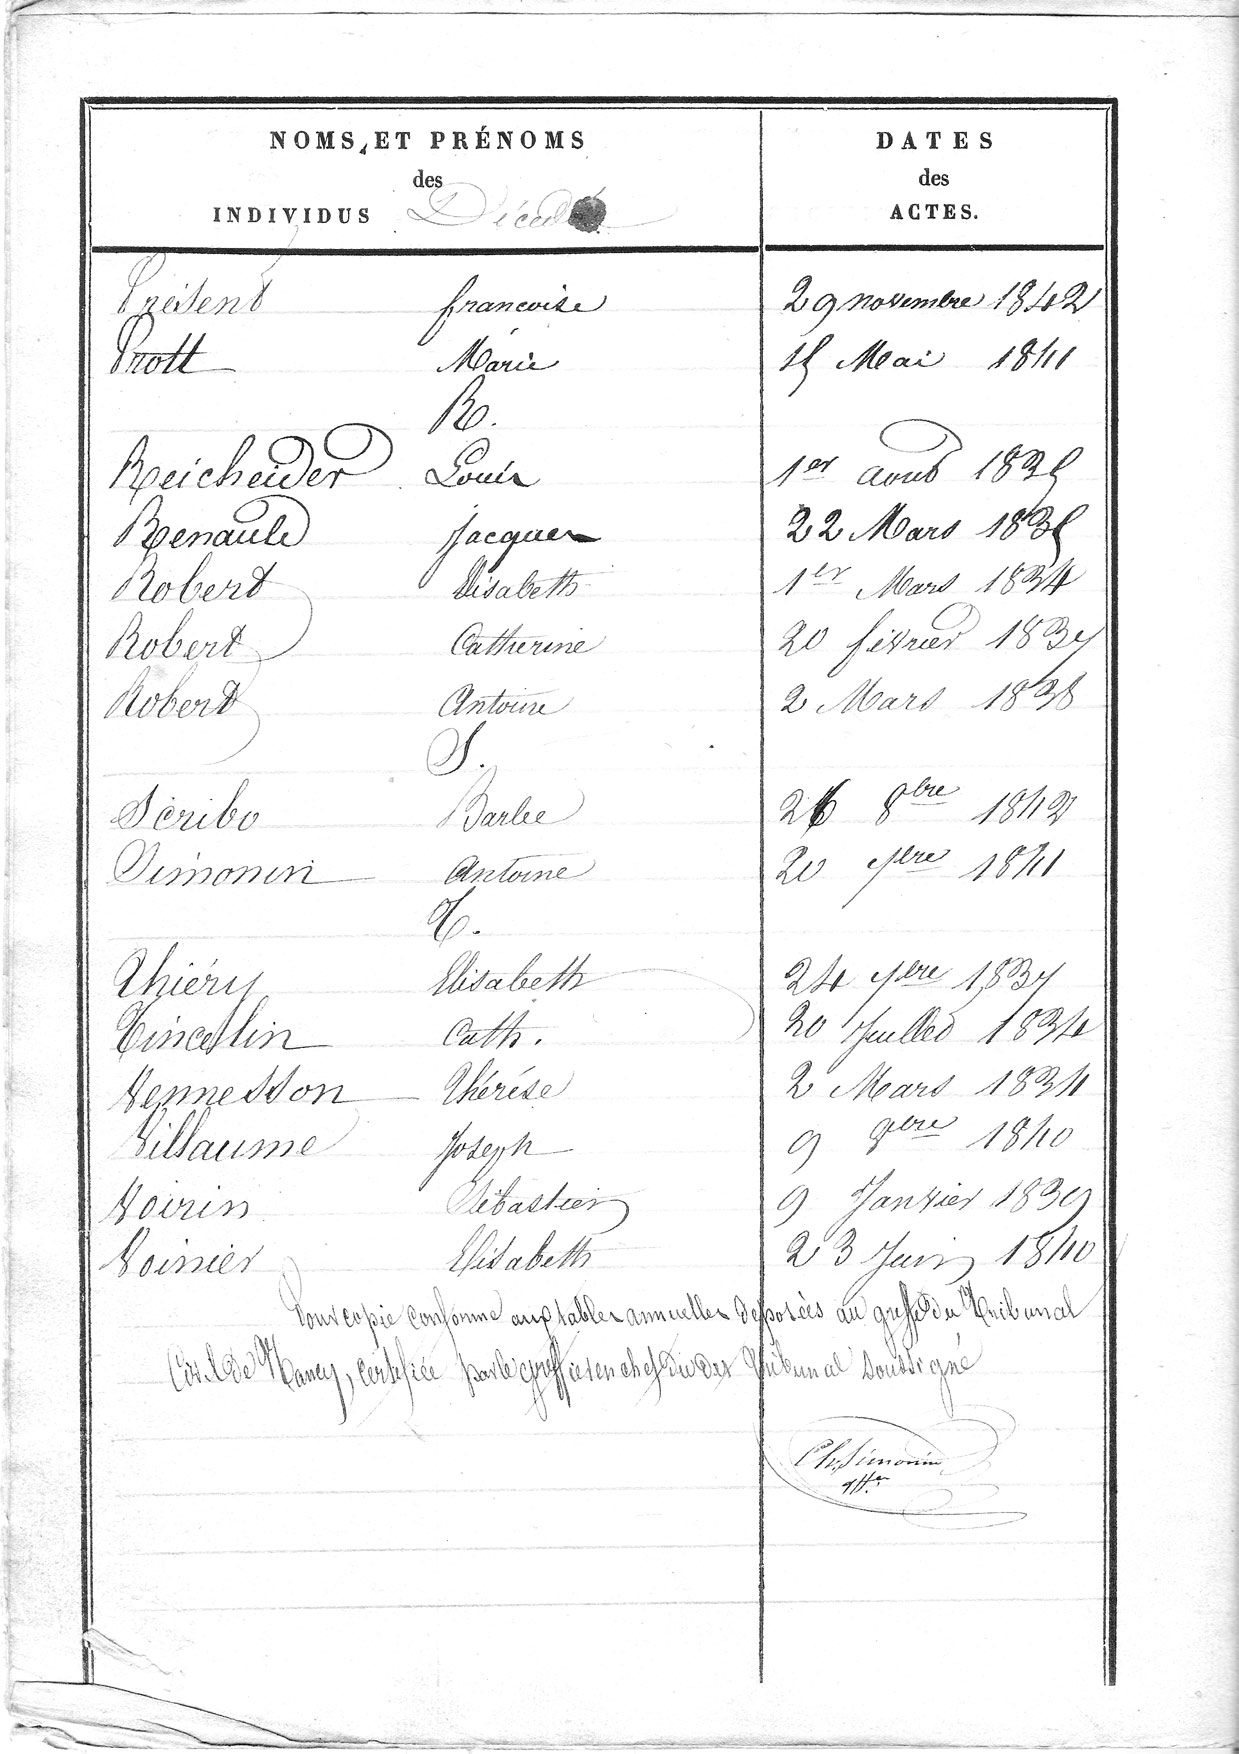 NOMS, ET PRÉNOMS DATES
des des
INDIVIDUS Décédé ACTES.
Présent françoise 29 novembre 1842
Prott Marie 15 Mai 1841
R.
Reicheider Louis 1er aout 1835
Renauld jacques 22 Mars 1835
Robert Elisabeth 1er Mars 1834
Robert Catherine 20 février 1837
Robert Antoine 2 Mars 1838
S.
Scribo Barbe 26 8bre 1842
Simonin Antoine 20 7bre 1841
T.
Thiéry Elisabeth 24 7bre 1837
Tincelin Cath. 20 Juillet 1834
Vennesson Thérése 2 Mars 1834
Villaume Joseph 9 8bre 1840
Voirin Sébastien 9 Janvier 1839
Voinier Elisabeth 23 Juin 1840
Pour copie conforme aux tables annuelles déposées au greffe du Tribunal
Civil de Nancy, certifiée par le greffier en chef du dit Tribunal soussigné
Ch. Simonin